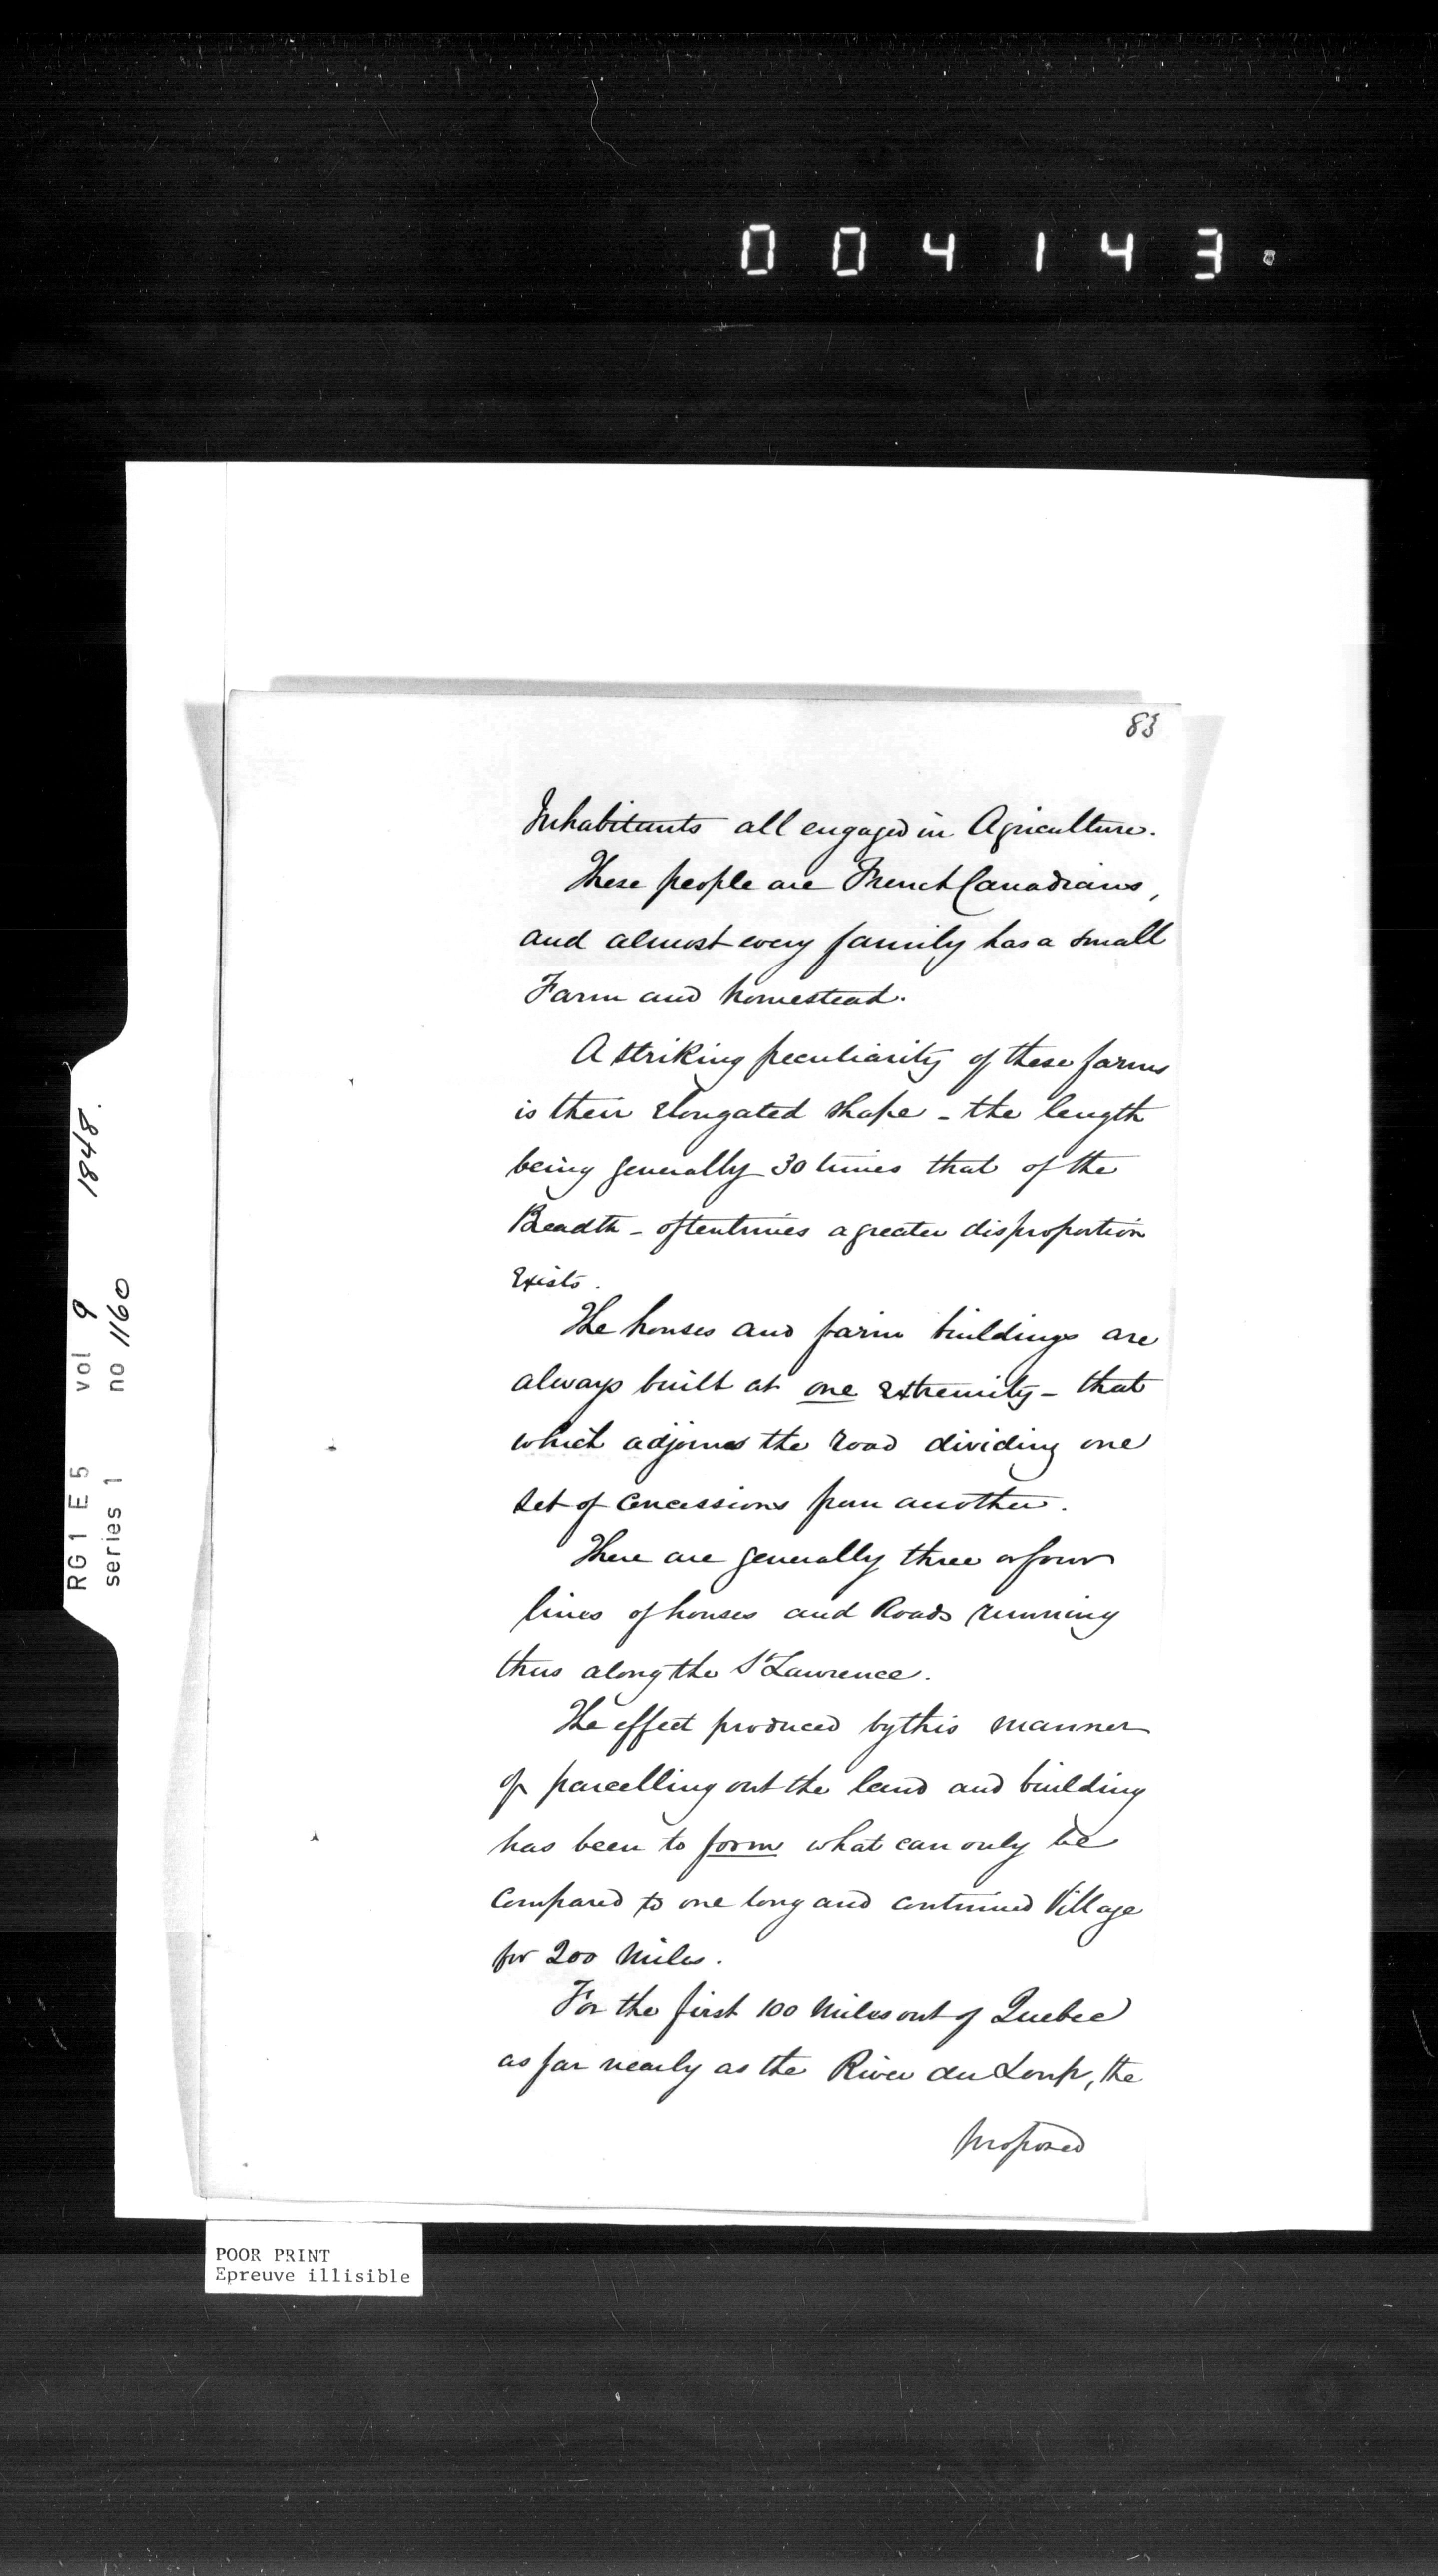 004143
83
Inhabitants all engaged in Agriculture.
These people are French Canadians,
and almost every family has a small
Farm and homestead.
A striking peculiarity of these farms
is their elongated shape - the length
being generally 30 times that of the
Breadth - oftentimes a greater disproportion
Exists.
The houses and farm buildings are
always built at one extremity - that
which adjoins the road dividing one
set of Concessions from another.
There are generally three or four
lines of houses and Roads running
thus along the St Lawrence.
The effect produced by this manner
of parcelling out the land and building
has been to form what can only be
Compared to one long and continued Village
for 200 Miles.
For the first 100 Miles out of Quebec
as far nearly as the River du Loup, the
proposed
RG 1 E 5 vol 9 1848.
series 1 no 1160
POOR PRINT
Epreuve illisible